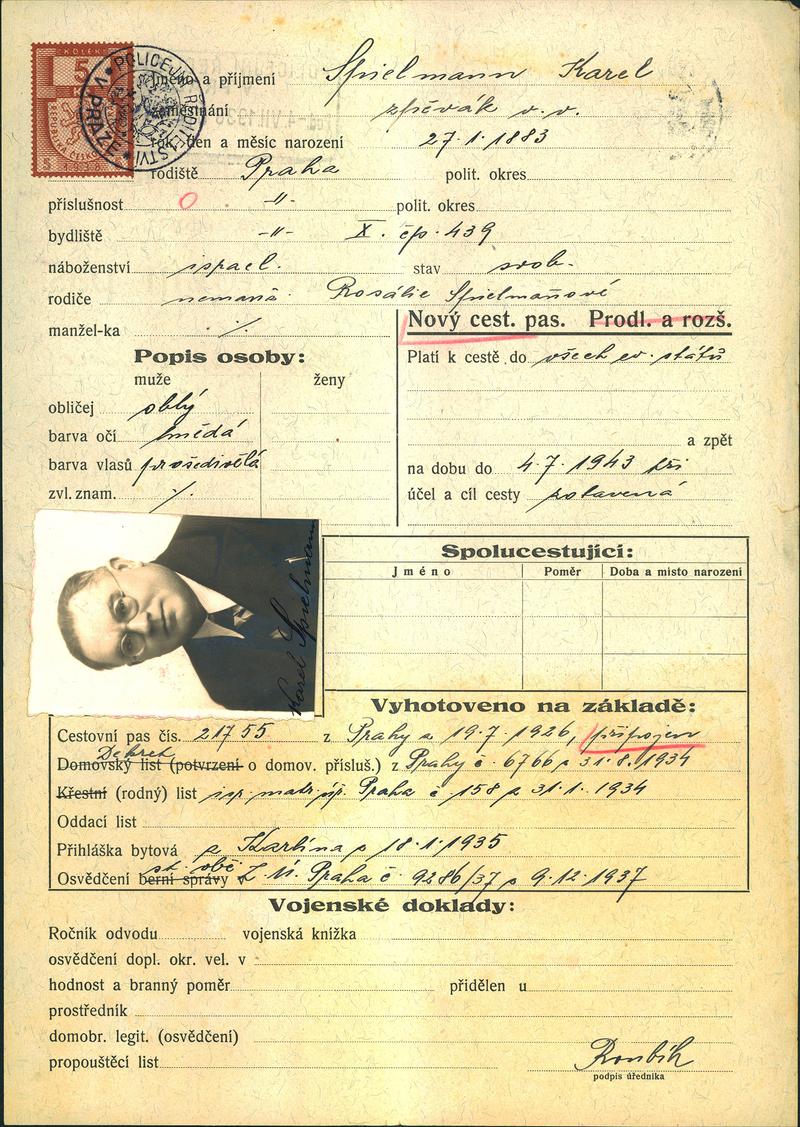 KOLEK
5
POLICEJNÍ ŘEDITELSTVÍ V PRAZE
Jméno a příjmení Spielmann Karel
zaměstnání zpěvák v. v.
rok, den a měsíc narození 27.1.1883
rodiště Praha polit. okres
příslušnost -"- polit. okres
bydliště -"- X. čp. 439
náboženství israel. stav svob.
rodiče nemanž. Rosálie Spielmanové
manžel-ka ./.
Nový cest. pas. Prodl. a rozš.
Popis osoby:
muže ženy
obličej oblý
barva očí hnědá
barva vlasů prošedivělá
zvl. znam. ./.
Platí k cestě do všech ev. států
a zpět
na dobu do 4.7.1943
účel a cíl cesty zotavená
Karel Spielmann
Spolucestující:
Jméno Poměr Doba a místo narození
Vyhotoveno na základě:
Cestovní pas čís. 21755 z Prahy z 19.7.1926, připojen
Dekret
Domovský list (potvrzení o domov. přísluš.) z Prahy č. 6766 z 31.8.1934
Křestní (rodný) list isr. matr. úř. Praha č. 158 z 31.1.1934
Oddací list
Přihláška bytová z Karlína z 18.1.1935
st. obč.
Osvědčení berní správy Z. Ú. Praha č. 9286/37 z 9.12.1937
Vojenské doklady:
Ročník odvodu vojenská knížka
osvědčení dopl. okr. vel. v
hodnost a branný poměr přidělen u
prostředník
domobr. legit. (osvědčení)
propouštěcí list
podpis úředníka